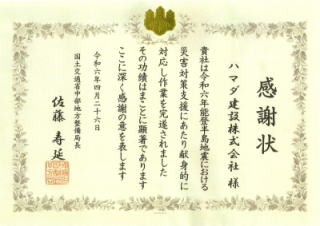 感謝状
ハマダ建設株式会社 様
貴社は令和六年能登半島地震における
災害対策支援にあたり献身的に
対応し作業を完遂されました
その功績はまことに顕著であります
ここに深く感謝の意を表します
令和六年四月二十六日
国土交通省中部地方整備局長
佐藤 寿延